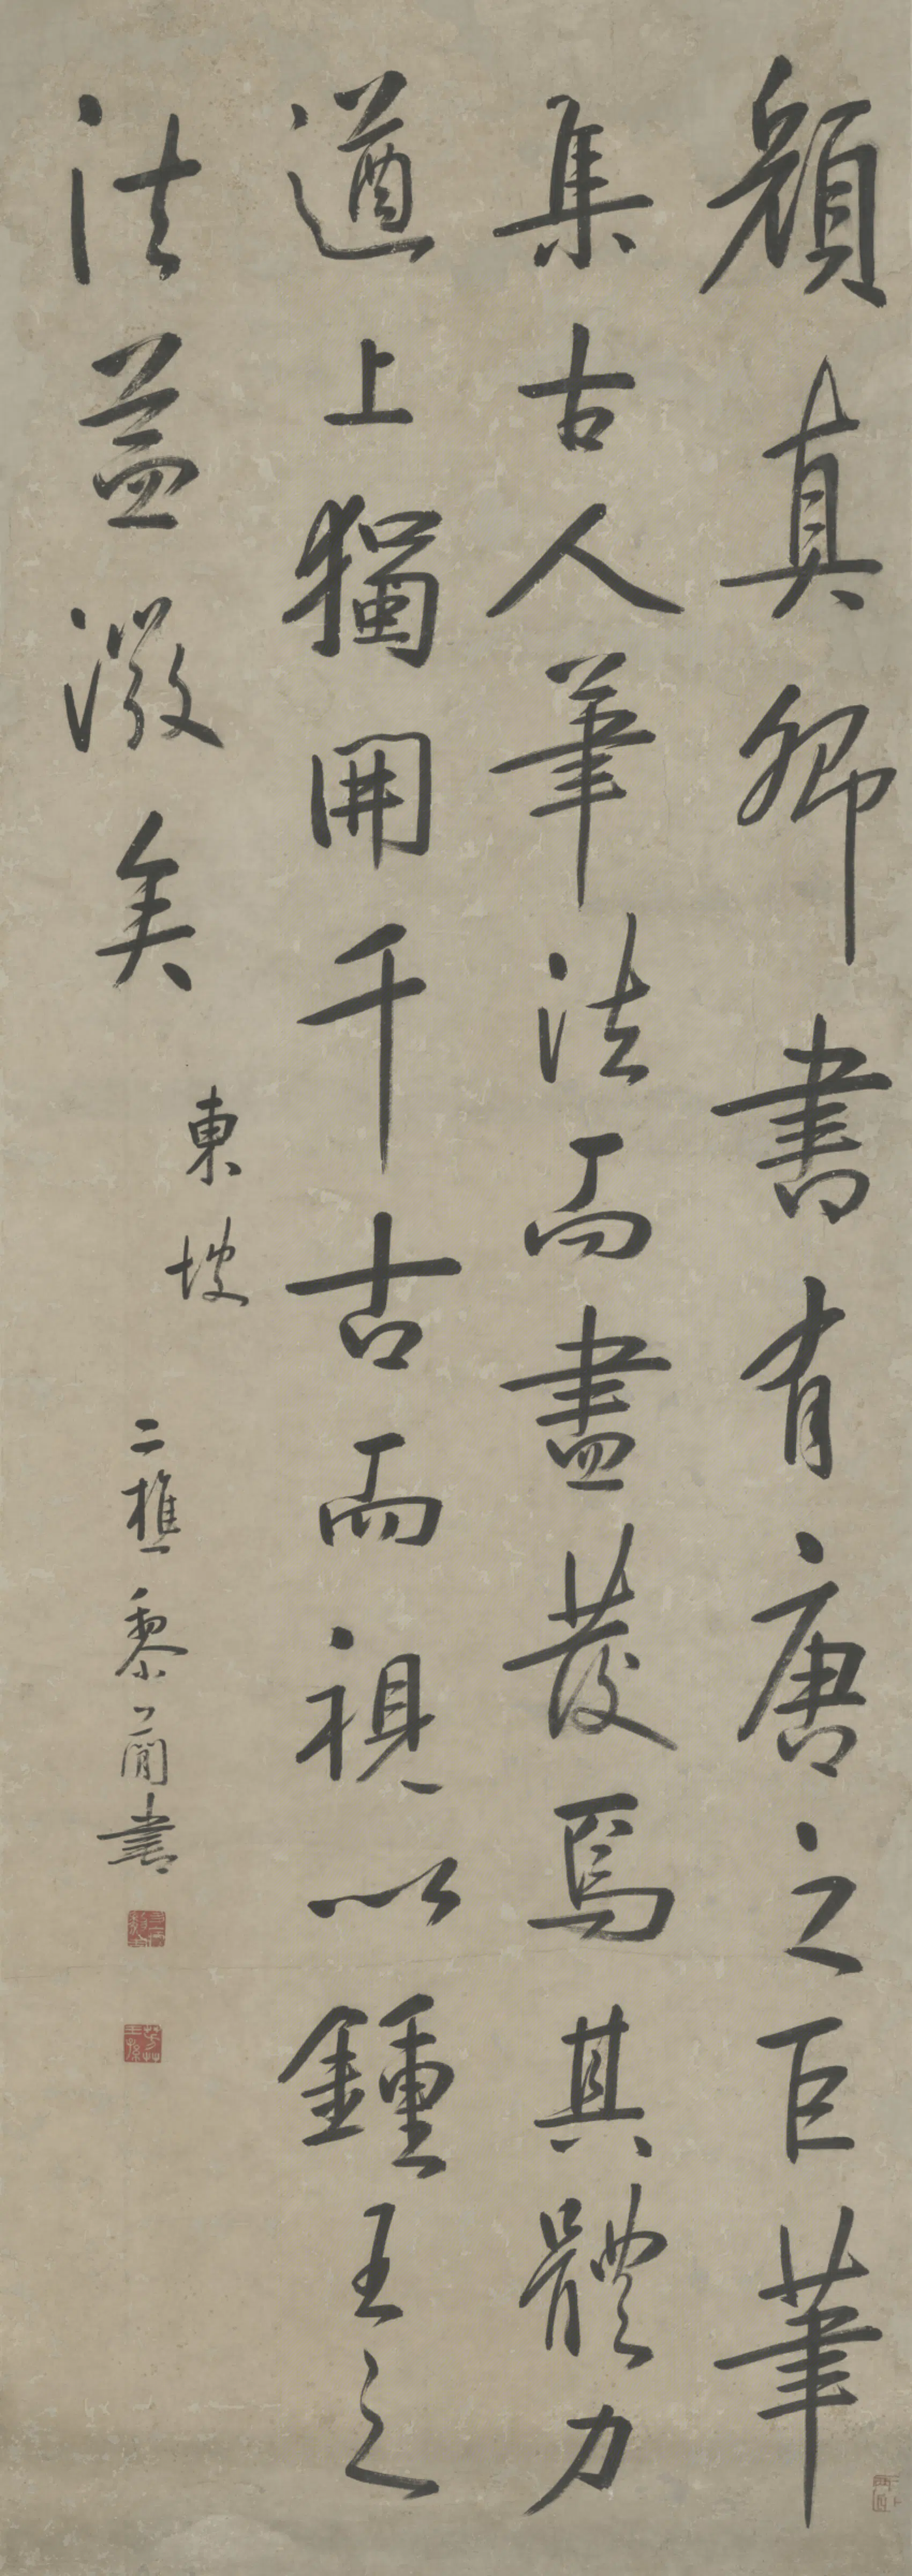 顏真卿書有唐之巨筆
集古人筆法而盡發焉其體力
遒上獨開千古而視以鍾王之
法益微矣
東坡
二樵黎簡書